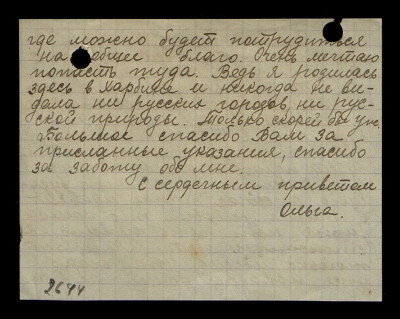 где можно будет потрудиться
на общее благо. Очень мечтаю
попасть туда. Ведь я родилась
здесь в Харбине и никогда не ви-
дала ни русских городов, ни рус-
ской природы. Только скорей бы уж.
Большое спасибо Вам за
присланные указания, спасибо
за заботу обо мне.
С сердечным приветом
Ольга.
2644